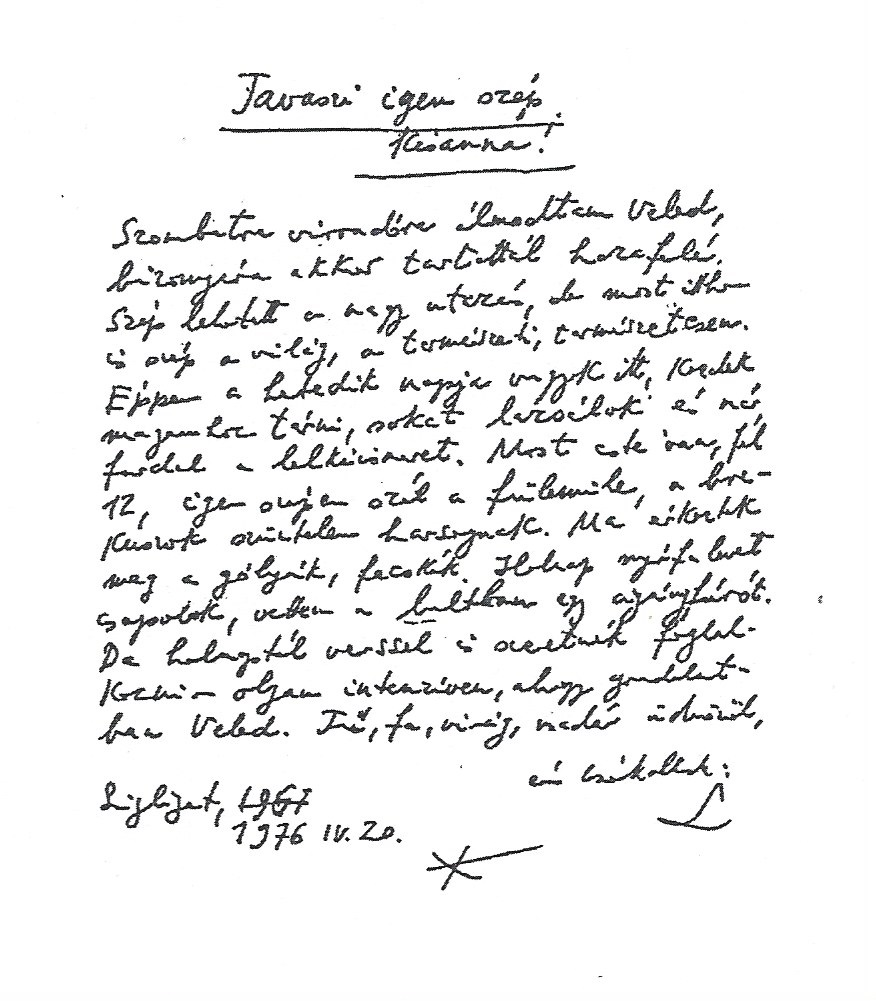 Tavaszi igen szép
Kisanna!
Szombatra virradóra álmodtam Veled,
bizonyára akkor tartottál hazafelé.
Szép lehetett a nagy utazás, de most itthon
is szép a világ, a természeti, természetesen.
Éppen a hetedik napja vagyok itt, Kezdek
magamhoz térni, sokat
furdal a lelkiismeret. Most este van, fél
12, igen szépen szól a fülemüle, a bre-
kusok szüntelen harsognak. Ma érkeztek
meg a gólyák, fecskék. Holnap nyírfa levet
csapolok, vettem a boltban egy
De holnaptól verssel is szeretnék foglal-
kozni – olyan intenzíven, ahogy gondolat-
ban Veled. Fű, fa, virág, madár üdvözöl,
én csókollak:
Szigliget, 1967
1976 IV. 20.
L